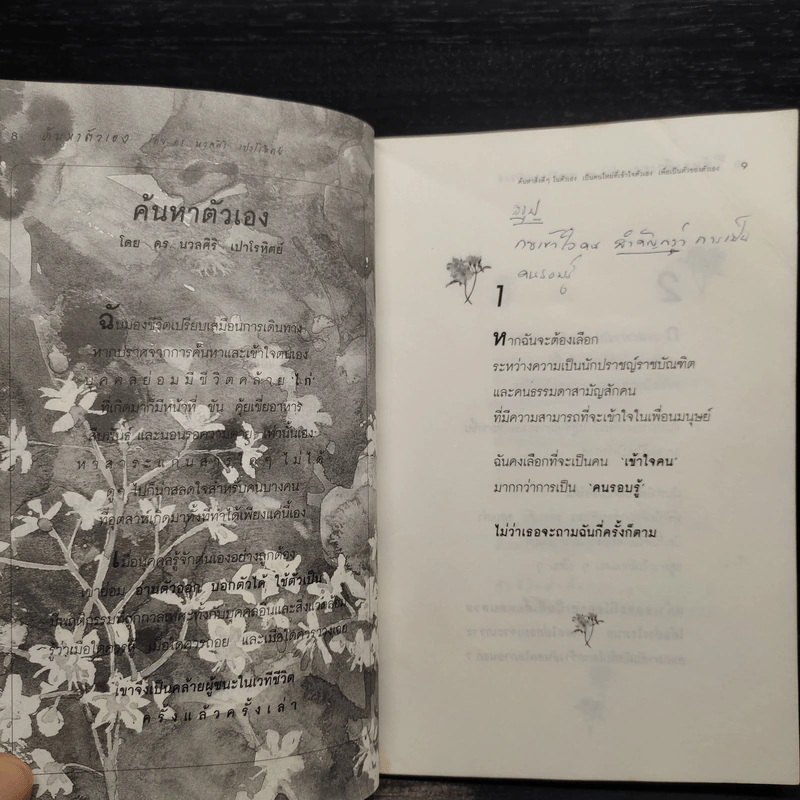 8 ค้นหาตัวเอง โดย ดร นวลศิริ เปาโรหิตย์
ค้นหาตัวเอง
โดย ดร. นวลศิริ เปาโรหิตย์
ฉันมองชีวิตเปรียบเสมือนการเดินทาง
หากปราศจากการค้นหาและเข้าใจตนเอง
บุคคลย่อมมีชีวิตคล้าย 'ไก่'
ที่เกิดมาก็มีหน้าที่ ขัน คุ้ยเขี่ยอาหาร
สืบพันธุ์ และนอนรอความตาย เท่านั้นเอง
หาสาระแก่นสารใดๆ ไม่ได้
ดูๆ ไปก็น่าสลดใจสำหรับคนบางคน
ที่อุตส่าห์เกิดมาทั้งทีทำได้เพียงแค่นี้เอง
เมื่อบุคคลรู้จักตนเองอย่างถูกต้อง
เขาย่อม อ่านตัวออก บอกตัวได้ ใช้ตัวเป็น
มีพฤติกรรมที่ถูกกาลเทศะทั้งกับบุคคลอื่นและสิ่งแวดล้อม
รู้ว่าเมื่อใดควรสู้ เมื่อใดควรถอย และเมื่อใดควรวางเฉย
เขาจึงเป็นคล้ายผู้ชนะในเวทีชีวิต
ครั้งแล้วครั้งเล่า
ค้นหาสิ่งดีๆ ในตัวเอง เป็นคนใหม่ที่เข้าใจตัวเอง เพื่อเป็นตัวของตัวเอง ๑
สรุป
การเข้าใจคน สำคัญกว่า การเป็น
คนรอบรู้
1
หากฉันจะต้องเลือก
ระหว่างความเป็นนักปราชญ์ราชบัณฑิต
และคนธรรมดาสามัญสักคน
ที่มีความสามารถที่จะเข้าใจในเพื่อนมนุษย์
ฉันคงเลือกที่จะเป็นคน 'เข้าใจคน'
มากกว่าการเป็น 'คนรอบรู้'
ไม่ว่าเธอจะถามฉันกี่ครั้งก็ตาม